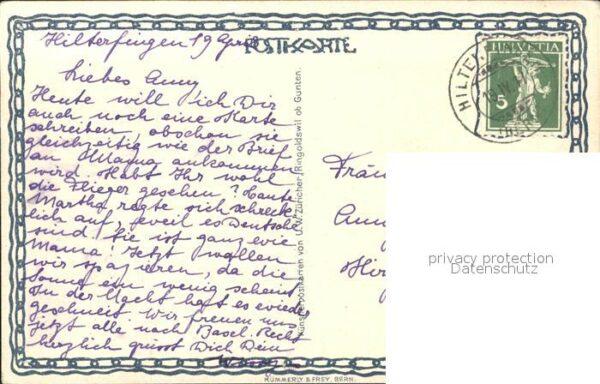 Hilterfingen 19 April
POSTKARTE
Liebes Anny
Heute will ich Dir
auch noch eine Karte
schreiben, obschon sie
gleichzeitig wie der Brief
an Mama ankommen
wird. Habt Ihr wohl
die Flieger gesehen? Tante
Martha regte sich schreck-
lich auf, weil es Deutsche
sind! Sie ist ganz wie
Mama! Jetzt wollen
wir spazieren, da die
Sonne ein wenig scheint.
In der Nacht hat es wieder
geschneit. Wir freuen uns
jetzt alle nach Basel. Recht
herzlich grüsst Dich Dein
Künstlerpostkarten von U. W. Züricher, Ringoldswil ob Gunten.
KÜMMERLY & FREY, BERN.
HELVETIA
5
HILTE
Fräu
Anny
Hir
privacy protection
Datenschutz